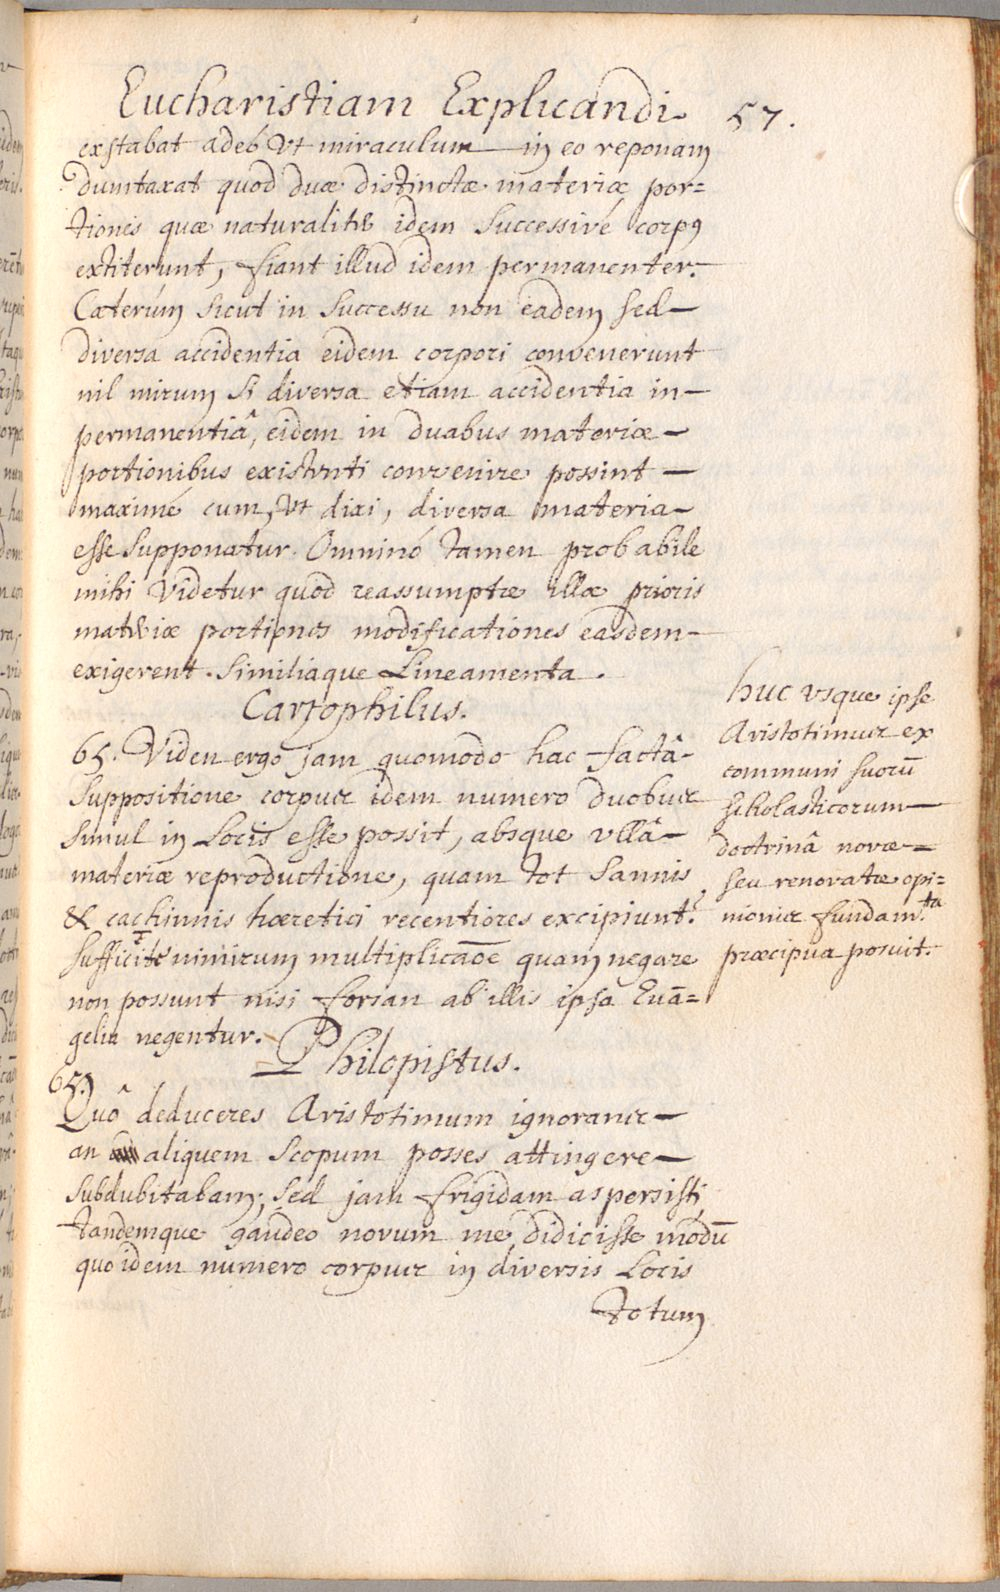 Eucharistiam Explicandi. 57.
exstabat adeó Vt miraculum in eo reponam
dumtaxat quod duæ distinctæ materiæ por=
tiones quæ naturalitr idem Successivé corpꝰ
extiterunt, fiant illud idem permanenter.
Cæterúm sicut in Successu non eadem sed
diversa accidentia eidem corpori convenerunt
nil mirum si diversa etiam accidentia in
permanentiâ, eidem in duabus materiæ
portionibus existenti convenire possint
maximé cum, Vt dixi, diversa materia
esse Supponatur. Omninó tamen probabile
mihi Videtur quod reassumptæ illæ prioris
materiæ portiones modificationes easdem
exigerent. Similiaque Lineamenta.
Cartophilus.
65. Viden ergo jam quomodo hac factâ
Suppositione corpus idem numero duobus
Simul in Locis esse possit, absque vllâ
materiæ reproductione, quam tot Sannis
& cachinnis hæretici recentiores excipiunt?
Sufficit nimirum multiplicaõe quam negare
non possunt nisi forsan ab illis ipsa Evā=
gelia negentur.
Philopistus.
65.
Quô deduceres Aristotimum ignorans
an aliquem Scopum posses attingere
Subdubitabam; Sed jam frigidam aspersisti
tandemque gaudeo novum me didicisse modū
quo idem numero corpus in diversis Locis
totum
huc vsque ipse
Aristotimus ex
communi suorū
scholasticorum
doctrinâ novæ
seu renovatæ opi=
nionis fundam.ta
præcipua posuit.